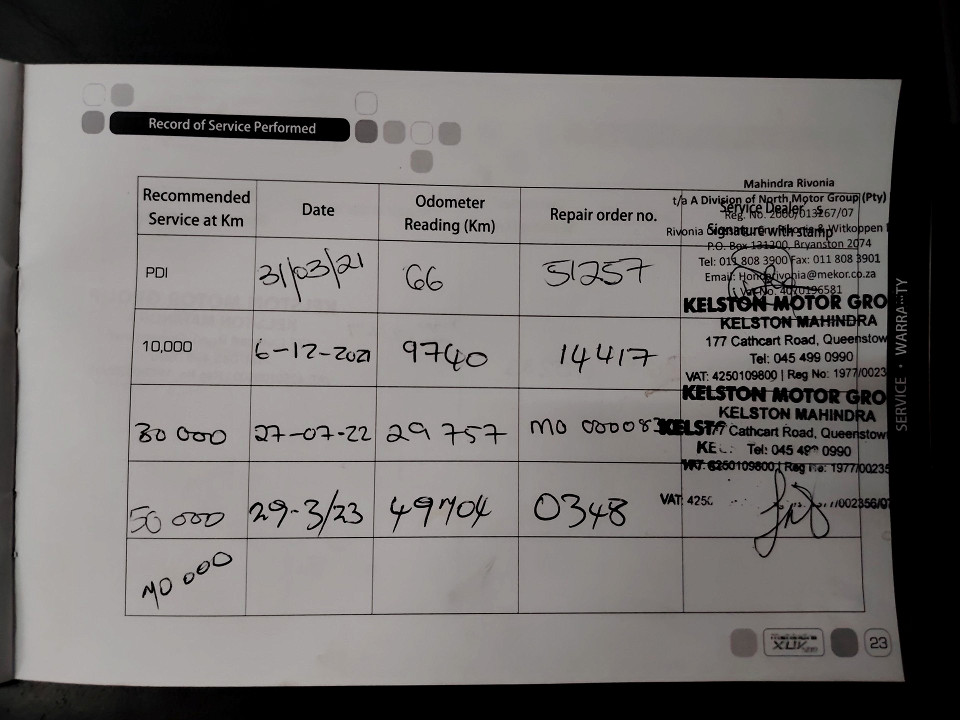 Record of Service Performed
Recommended Service at Km
Date
Odometer Reading (Km)
Repair order no.
Service Dealer
Signature with stamp
Mahindra Rivonia
t/a A Division of North Motor Group (Pty)
Reg. No.
Rivonia
& Witkoppen
P.O. Box 131200, Bryanston 2074
Tel: 011 808 3900 Fax: 011 808 3901
Email: Hondarivonia@mekor.co.za
PDI 31/03/21 66 51257
No. 4070196581
KELSTON MOTOR GRO
KELSTON MAHINDRA
177 Cathcart Road, Queenstow
10,000 6-12-2021 9740 14417
Tel: 045 499 0990
VAT: 4250109800 | Reg No: 1977/0023
KELSTON MOTOR GRO
KELSTON MAHINDRA
30 000 27-07-22 29 757 MO 000083
Cathcart Road, Queenstow
Tel: 045 499 0990
4250109800 | Reg No: 1977/00235
50 000 29-3/23 49704 0348
VAT: 425
/002356/07
SERVICE • WARRANTY
Mahindra
XUV
23